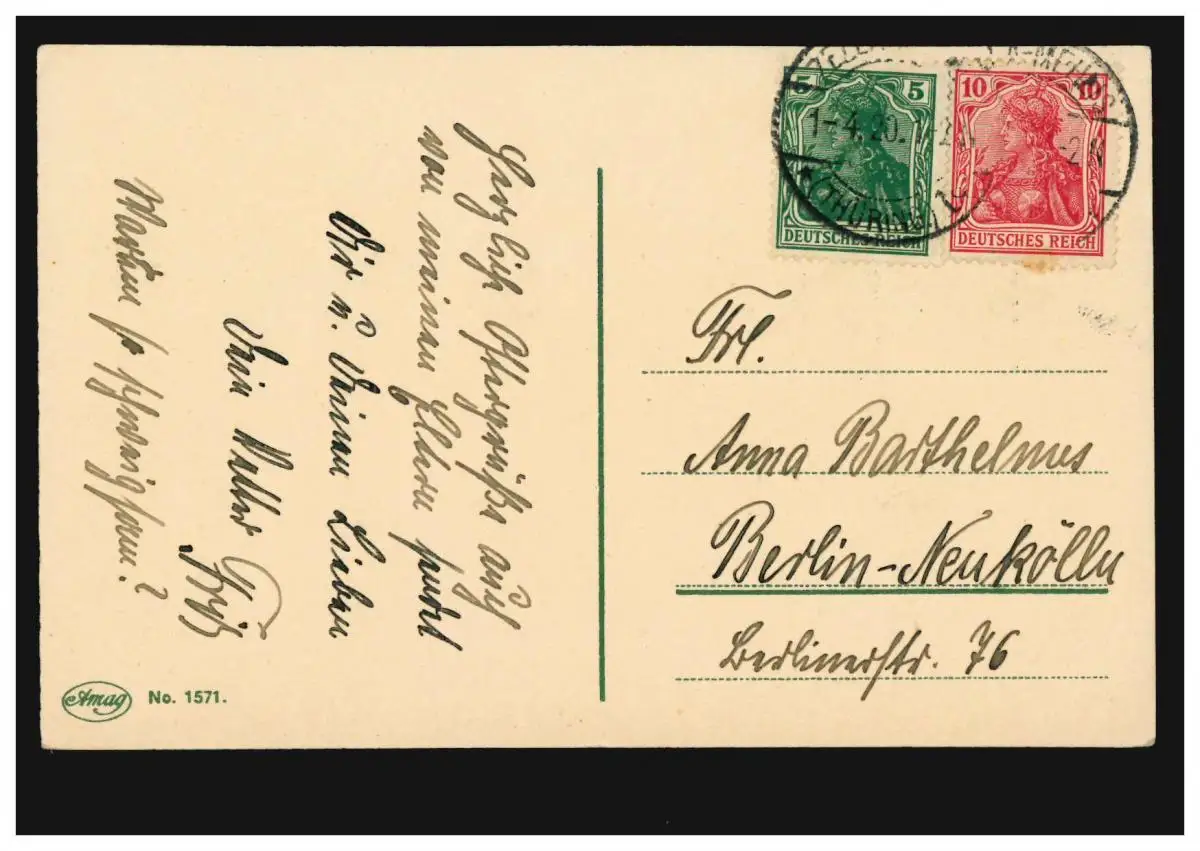 Herzliche Ostergrüße auch
von meinen Eltern sendet
Dir u. Deinen Lieben
Dein Vetter
Fritz
Warum so schweigsam?
Amag No. 1571.
5 5
DEUTSCHES REICH
10 10
DEUTSCHES REICH
1-4.20.
(THÜRING.)
Frl.
Anna Barthelmes
Berlin-Neukölln
Berlinerstr. 76